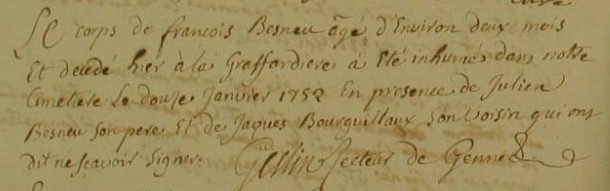 Le corps de françois Besneu âgé d'Environ deux mois
Et decedé hiér à la Graffardiere à Eté inhumé dans notre
Cimetiere Le douze Janvier 1752 En presence de Julien
Besneu Son pere Et de Jaques Bourguillaux Son Voisin qui ont
dit ne scavoir Signer. Recteur de Gennes